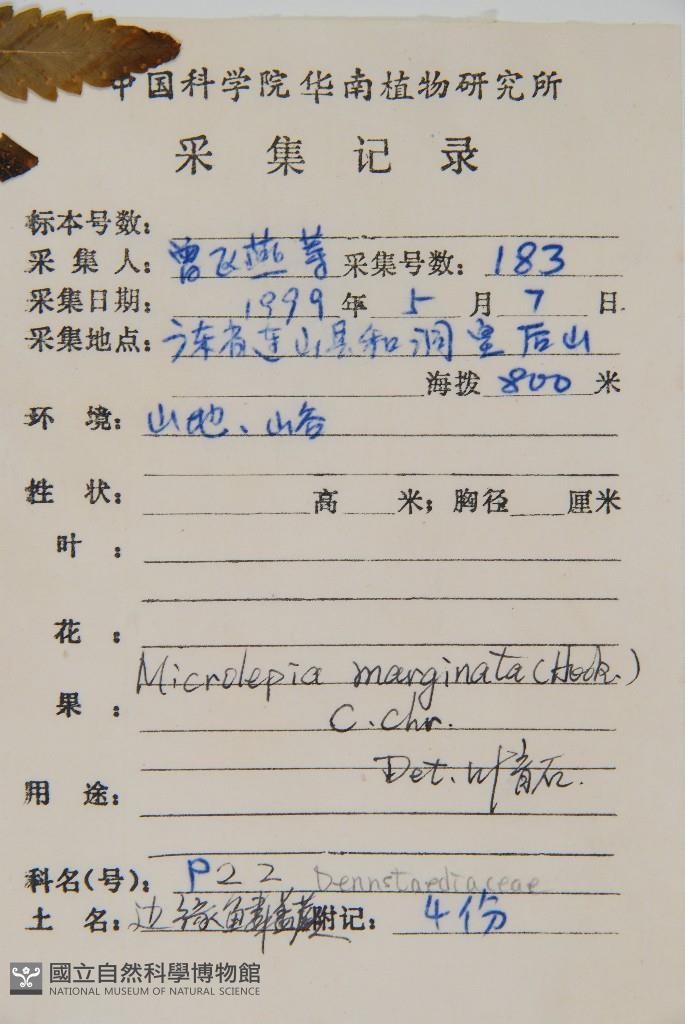 中国科学院华南植物研究所
采集记录
标本号数:
采集人: 曾飞燕等 采集号数: 183
采集日期: 1999 年 5 月 7 日
采集地点: 广东省连山县和洞皇后山
海拨 800 米
环境: 山地、山谷
性状: 高 米; 胸径 厘米
叶:
花:
Microlepia marginata (Hook.)
果: C. Chr.
Det. 叶育石.
用途:
科名(号): P22 Dennstaediaceae
土名: 边缘鳞盖蕨 附记: 4份
國立自然科學博物館
NATIONAL MUSEUM OF NATURAL SCIENCE